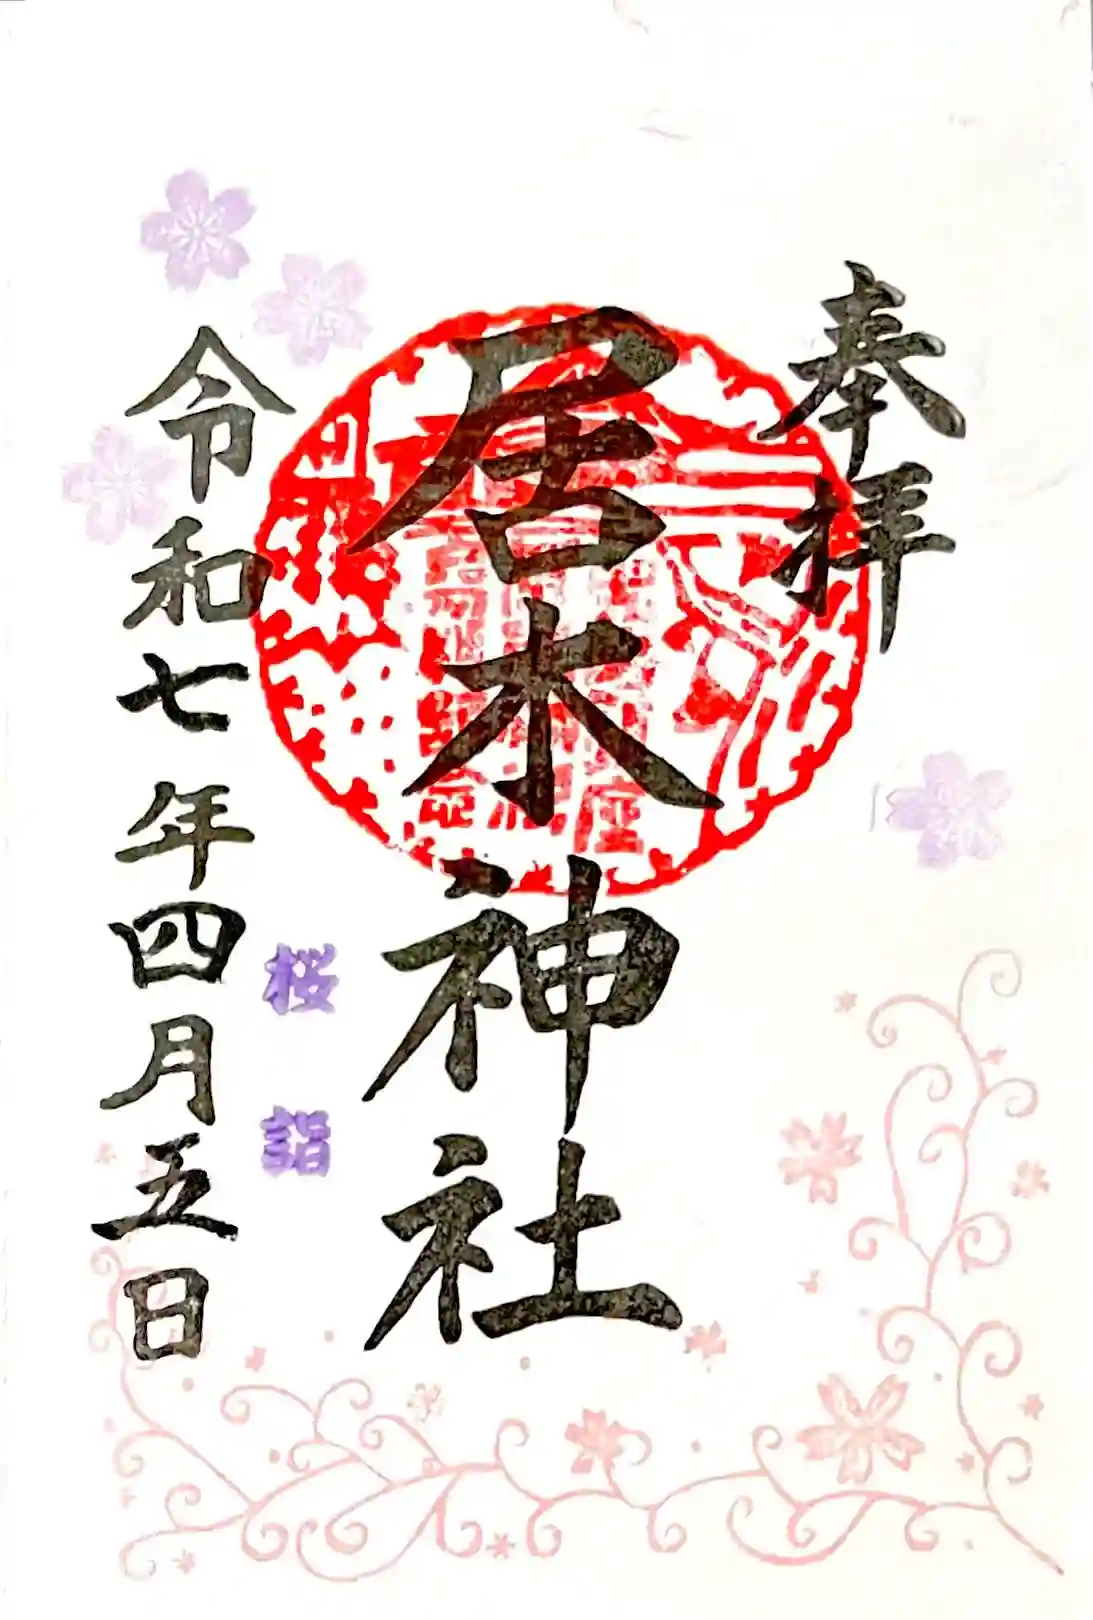 奉拝
居木神社
桜詣
令和七年四月五日